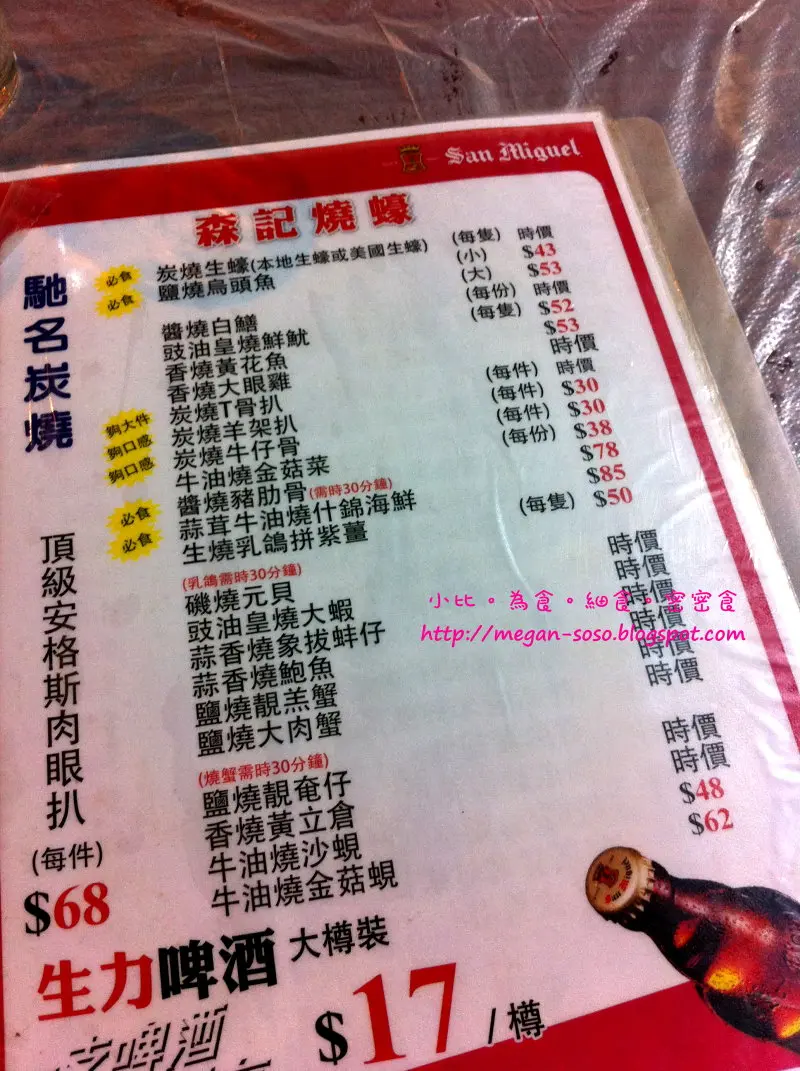 San Miguel
森記燒蠔
馳名炭燒
必食 炭燒生蠔(本地生蠔或美國生蠔) (每隻) 時價
必食 鹽燒烏頭魚 (小) $43
(大) $53
醬燒白鱔 (每份) 時價
豉油皇燒鮮魷 (每隻) $52
香燒黃花魚 $53
香燒大眼雞 時價
夠大件 炭燒T骨扒 (每件) 時價
夠口感 炭燒羊架扒 (每件) $30
夠口感 炭燒牛仔骨 (每件) $30
牛油燒金菇菜 (每份) $38
醬燒豬肋骨(需時30分鐘) $78
必食 蒜茸牛油燒什錦海鮮 $85
必食 生燒乳鴿拼紫薑 (每隻) $50
(乳鴿需時30分鐘)
磯燒元貝 時價
豉油皇燒大蝦 時價
蒜香燒象拔蚌仔 時價
蒜香燒鮑魚 時價
鹽燒靚羔蟹 時價
鹽燒大肉蟹 時價
(燒蟹需時30分鐘)
鹽燒靚奄仔 時價
香燒黃立倉 時價
牛油燒沙蜆 $48
牛油燒金菇蜆 $62
頂級安格斯肉眼扒
(每件)
$68
小比。為食。細食。密密食
http://megan-soso.blogspot.com
生力啤酒 大樽裝
$17/樽
啤酒